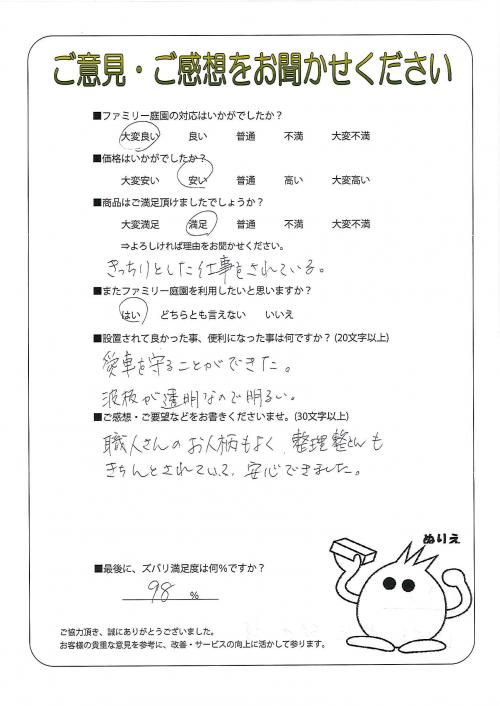 ご意見・ご感想をお聞かせください
■ファミリー庭園の対応はいかがでしたか?
大変良い 良い 普通 不満 大変不満
■価格はいかがでしたか?
大変安い 安い 普通 高い 大変高い
■商品はご満足頂けましたでしょうか?
大変満足 満足 普通 不満 大変不満
⇒よろしければ理由をお聞かせください。
きっちりとした仕事をされている。
■またファミリー庭園を利用したいと思いますか?
はい どちらとも言えない いいえ
■設置されて良かった事、便利になった事は何ですか? (20文字以上)
愛車を守ることができた。
波板が透明なので明るい。
■ご感想・ご要望などをお書きくださいませ。(30文字以上)
職人さんのお人柄もよく、整理整とんも
きちんとされていて、安心できました。
ぬりえ
■最後に、ズバリ満足度は何%ですか?
98 %
ご協力頂き、誠にありがとうございました。
お客様の貴重な意見を参考に、改善・サービスの向上に活かして参ります。